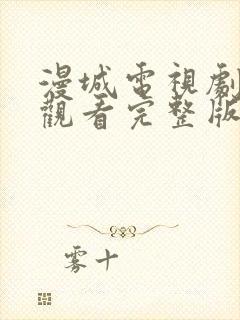 漫城電視劇
觀看完整版
雾十